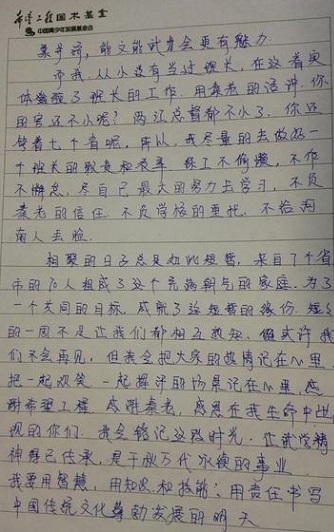 希望工程国术基金
中国青少年发展基金会
能文能武才会更有魅力
而我,从小没有当过班长,在这着实
体验了班长的工作。用袁老的话讲,你
的官还不小呢?两江总督都不小了,你还
管着七个省呢,所以,我尽量的去做好一
个班长的职责和表率,除了不偷懒,不作
不懈怠,尽自己最大的努力去学习,不负
袁老的信任,不负学校的重托,不给
南人丢脸。
相聚的日子总是如此短暂,来自了个省
市的70人组成了这个充满朝气的家庭,为了
一个共同的目标,成就了这短暂的缘份,短短
的一周不足让我们都相互熟知,但或许我
们不会再见,但我会把大家的热情记在心里,
把一起欢笑,一起挥汗的场景记在心里,感
谢希望工程,感谢袁老,感恩在我生命中出
现的你们,我会铭记这段时光,让武学精
神得已传承,是千秋万代永续的事业
我要用智慧,用知识和技能,用责任书写
中国传统文化蓬勃发展的明天